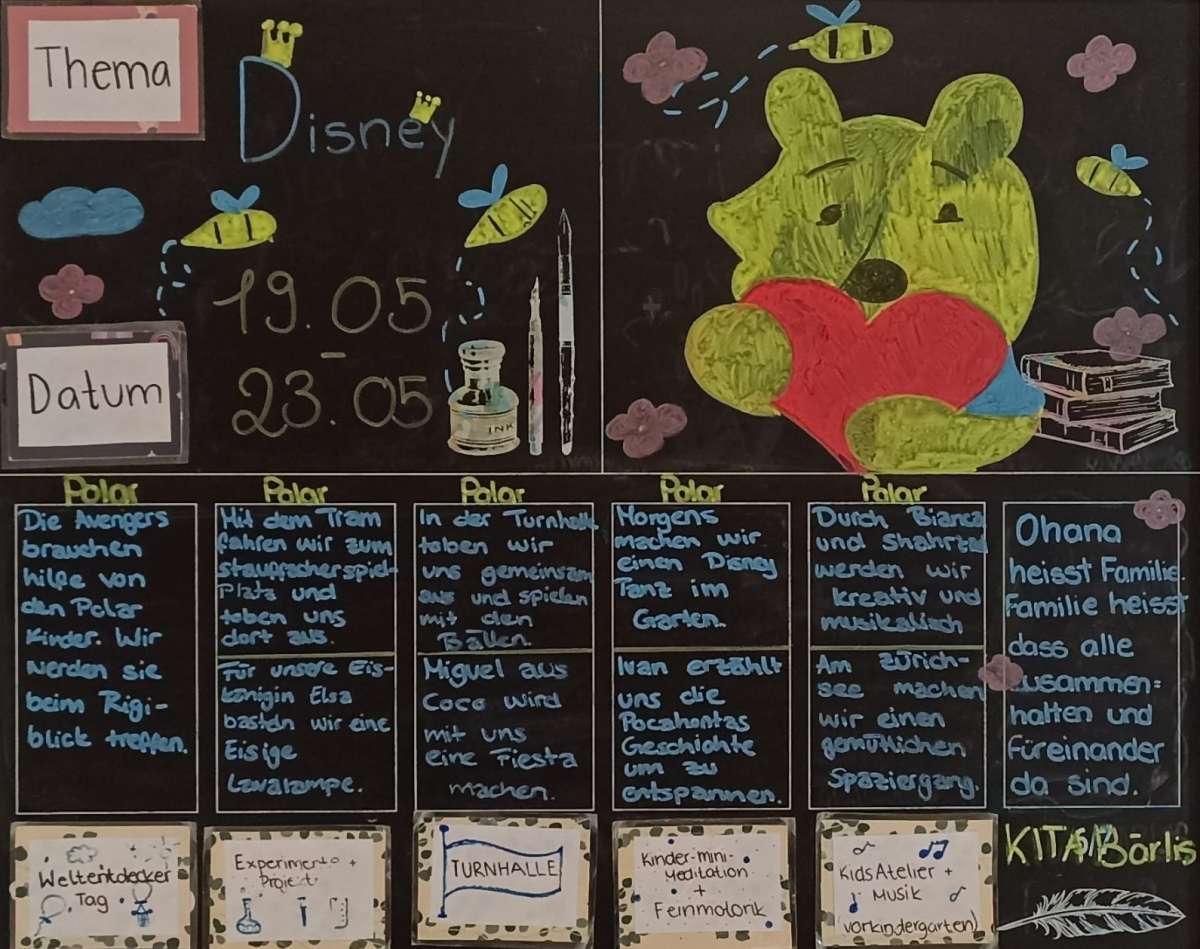 Thema
Disney
19.05
-
23.05
Datum
INK
Polar
Die Avengers
brauchen
hilfe von
den Polar
Kinder. Wir
werden sie
beim Rigi-
blick treffen.
Polar
Mit dem Tram
fahren wir zum
stauffacherspiel-
Platz und
toben uns
dort aus.
Für unsere Eis-
königin Elsa
basteln wir eine
Eisige
Lavalampe.
Polar
In der Turnhalle
toben wir
uns gemeinsam
aus und spielen
mit den
Bällen.
Miguel aus
Coco wird
mit uns
eine Fiesta
machen.
Polar
Morgens
machen wir
einen Disney
Tanz im
Garten.
Ivan erzählt
uns die
Pocahontas
Geschichte
um zu
entspannen.
Polar
Durch Bianca
und Shahrzad
werden wir
kreativ und
musikalisch
Am Zürich-
see machen
wir einen
gemütlichen
Spaziergang.
Ohana
heisst Familie.
Familie heisst
dass alle
zusammen=
halten und
füreinander
da sind.
Weltentdecker
Tag
Experimente +
Projekt
TURNHALLE
Kinder-mini-
Meditation
+
Feinmotorik
Kids Atelier +
Musik
(vorkindergarten)
KITA Bärlis